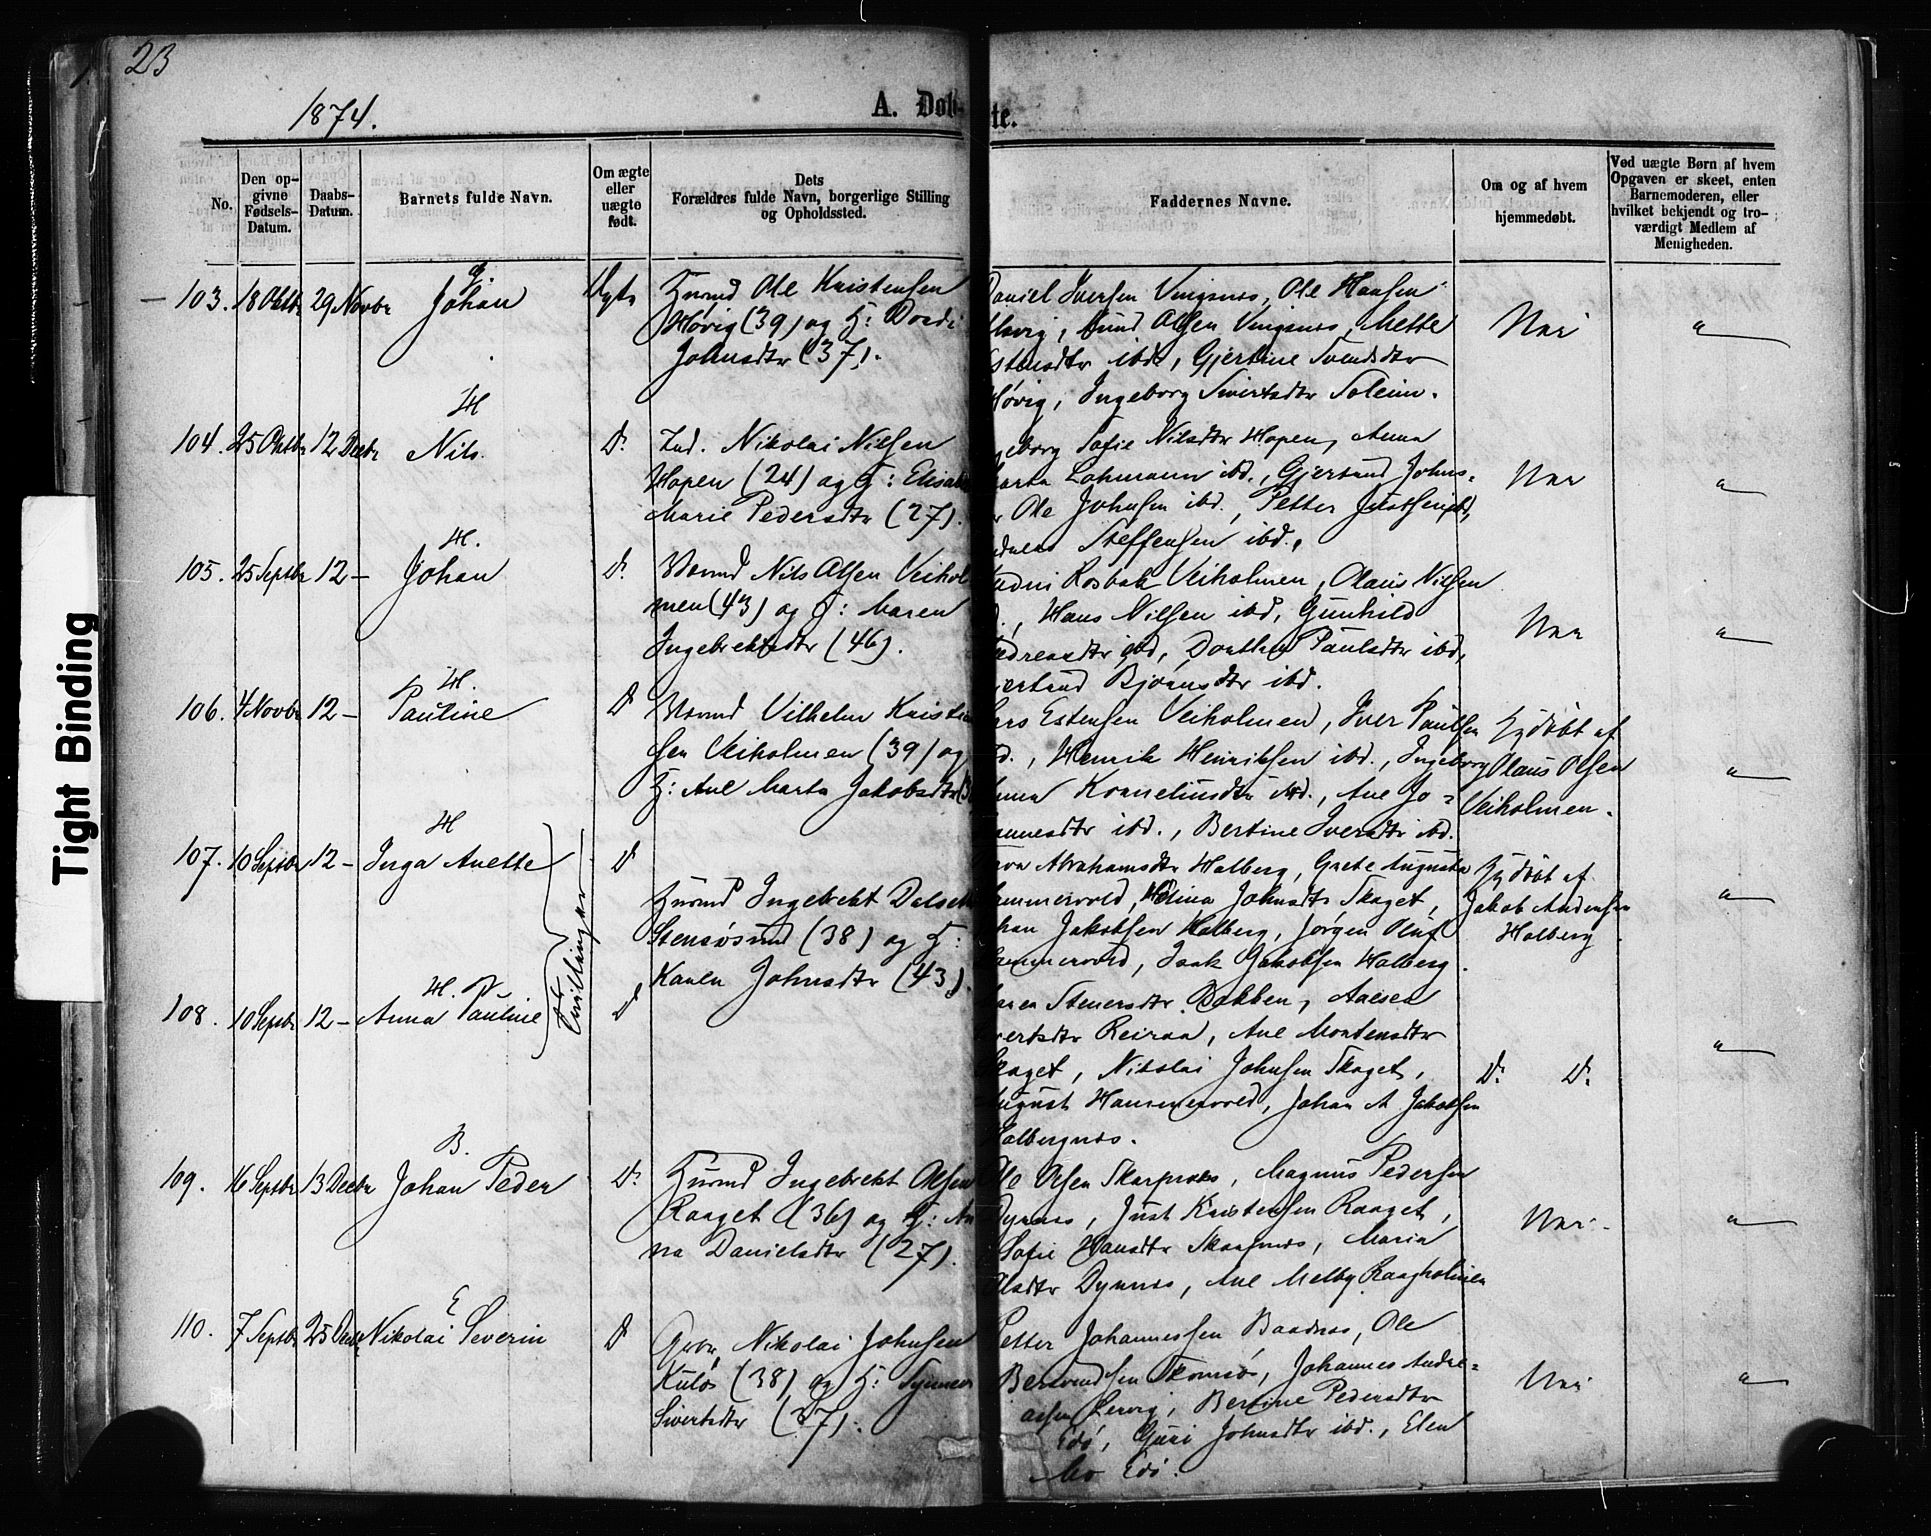 23
1874.
A. Døb- te.
No.
Den opgivne Fødsels-Datum.
Daabs-Datum.
Barnets fulde Navn.
Om ægte eller uægte født.
Dets Forældres fulde Navn, borgerlige Stilling og Opholdssted.
Faddernes Navne.
Om og af hvem hjemmedøbt.
Ved uægte Børn af hvem Opgaven er skeet, enten Barnemoderen, eller hvilket bekjendt og troværdigt Medlem af Menigheden.
Tight Binding
103. 18 Oktbr 29 Novbr Johan Ægte
Ole Kristensen
Høvig (39) og H: Dordi
Johnsdtr (37).
Daniel Iversen Vingsnes, Ole Hansen
Vingsnes, Mette
Estensdtr ibd., Gjertine Svendsdtr
Høvig, Ingeborg Sivertsdtr Soleim.
Nei "
104. 25 Oktbr 12 Decbr H Nils D.
Ind. Nikolai Nilsen
Hopen (24) og H:
Marie Pedersdtr (27).
Sofie Nilsdtr Hopen, Anna
Marta Lohmann ibd., Gjertrud Johns-
Ole Johnsen ibd., Petter
Steffensen ibd.
Nei "
105. 25 Septbr 12 – H. Johan D.
Nils Olsen Veihol
men (43) og H: Maren
Ingebrektsdtr (46).
Rosbak Veiholmen, Olaus Nilsen
Hans Nilsen ibd, Gunhild
Andreasdtr ibd, Dorthea Paulsdtr ibd,
Gjertrud Bjørnsdtr ibd.
Nei "
106. 4 Novbr 12 – H. Pauline D
Vilhelm Kristian
sen Veiholmen (39) og
H: Ane Marta Jakobsdtr
Lars Estensen Veiholmen, Iver Paulsen
ibd., Henrik Henriksen ibd., Ingeborg
Anna Korneliusdtr ibd., Ane Jo-
hannesdtr ibd., Bertine Iversdtr ibd.
Hjdøbt af
Olaus Olsen
Veiholmen.
"
107. 10 Septbr 12 – H Inga Anette D
Tvillinger
Ingebrekt
Stensøsund (38) og H:
Karen Johnsdtr (43).
Abrahamsdtr Halberg, Grete Augusta
Hammervold, Johnsdtr Skaget,
Johan Jakobsen Halberg, Jørgen Oluf
Hammervold, Isak Jakobsen Halberg.
Hjdøbt af
Jakob Andersen
Halberg
"
108. 10 Septbr 12 – H. Anna Pauline D
Maren Stenersdtr Bakken,
Sivertsdtr Reiraa, Ane Mortensdtr
Skaget, Nikolai Johnsen Skaget,
August Hammervold, Johan A Jakobsen
Halbergnes.
D. D.
"
109. 16 Septbr 13 Decbr B. Johan Peder D.
Ingebrekt Olsen
Raaget (36) og H: An
na Danielsdtr (27).
Ole Olsen Skarpnes, Magnus Pedersen
Dyrnes, Just Kristensen Raaget,
Sofie Hansdtr, Maria
Olsdtr Dyrnes, Ane Melby Raagholmen
Nei "
110. 7 Septbr 25 Decbr E Nikolai Severin D
Nikolai Johnsen
Kulø (38) og H: Synnev
Sivertsdtr (37).
Petter Johannessen Baadnes, Ole
Skomsø, Johannes Andre-
asen Lervig, Bertine Pedersdtr
Edø, Guri Johnsdtr ibd., Elen
Mo Edø.
Nei "